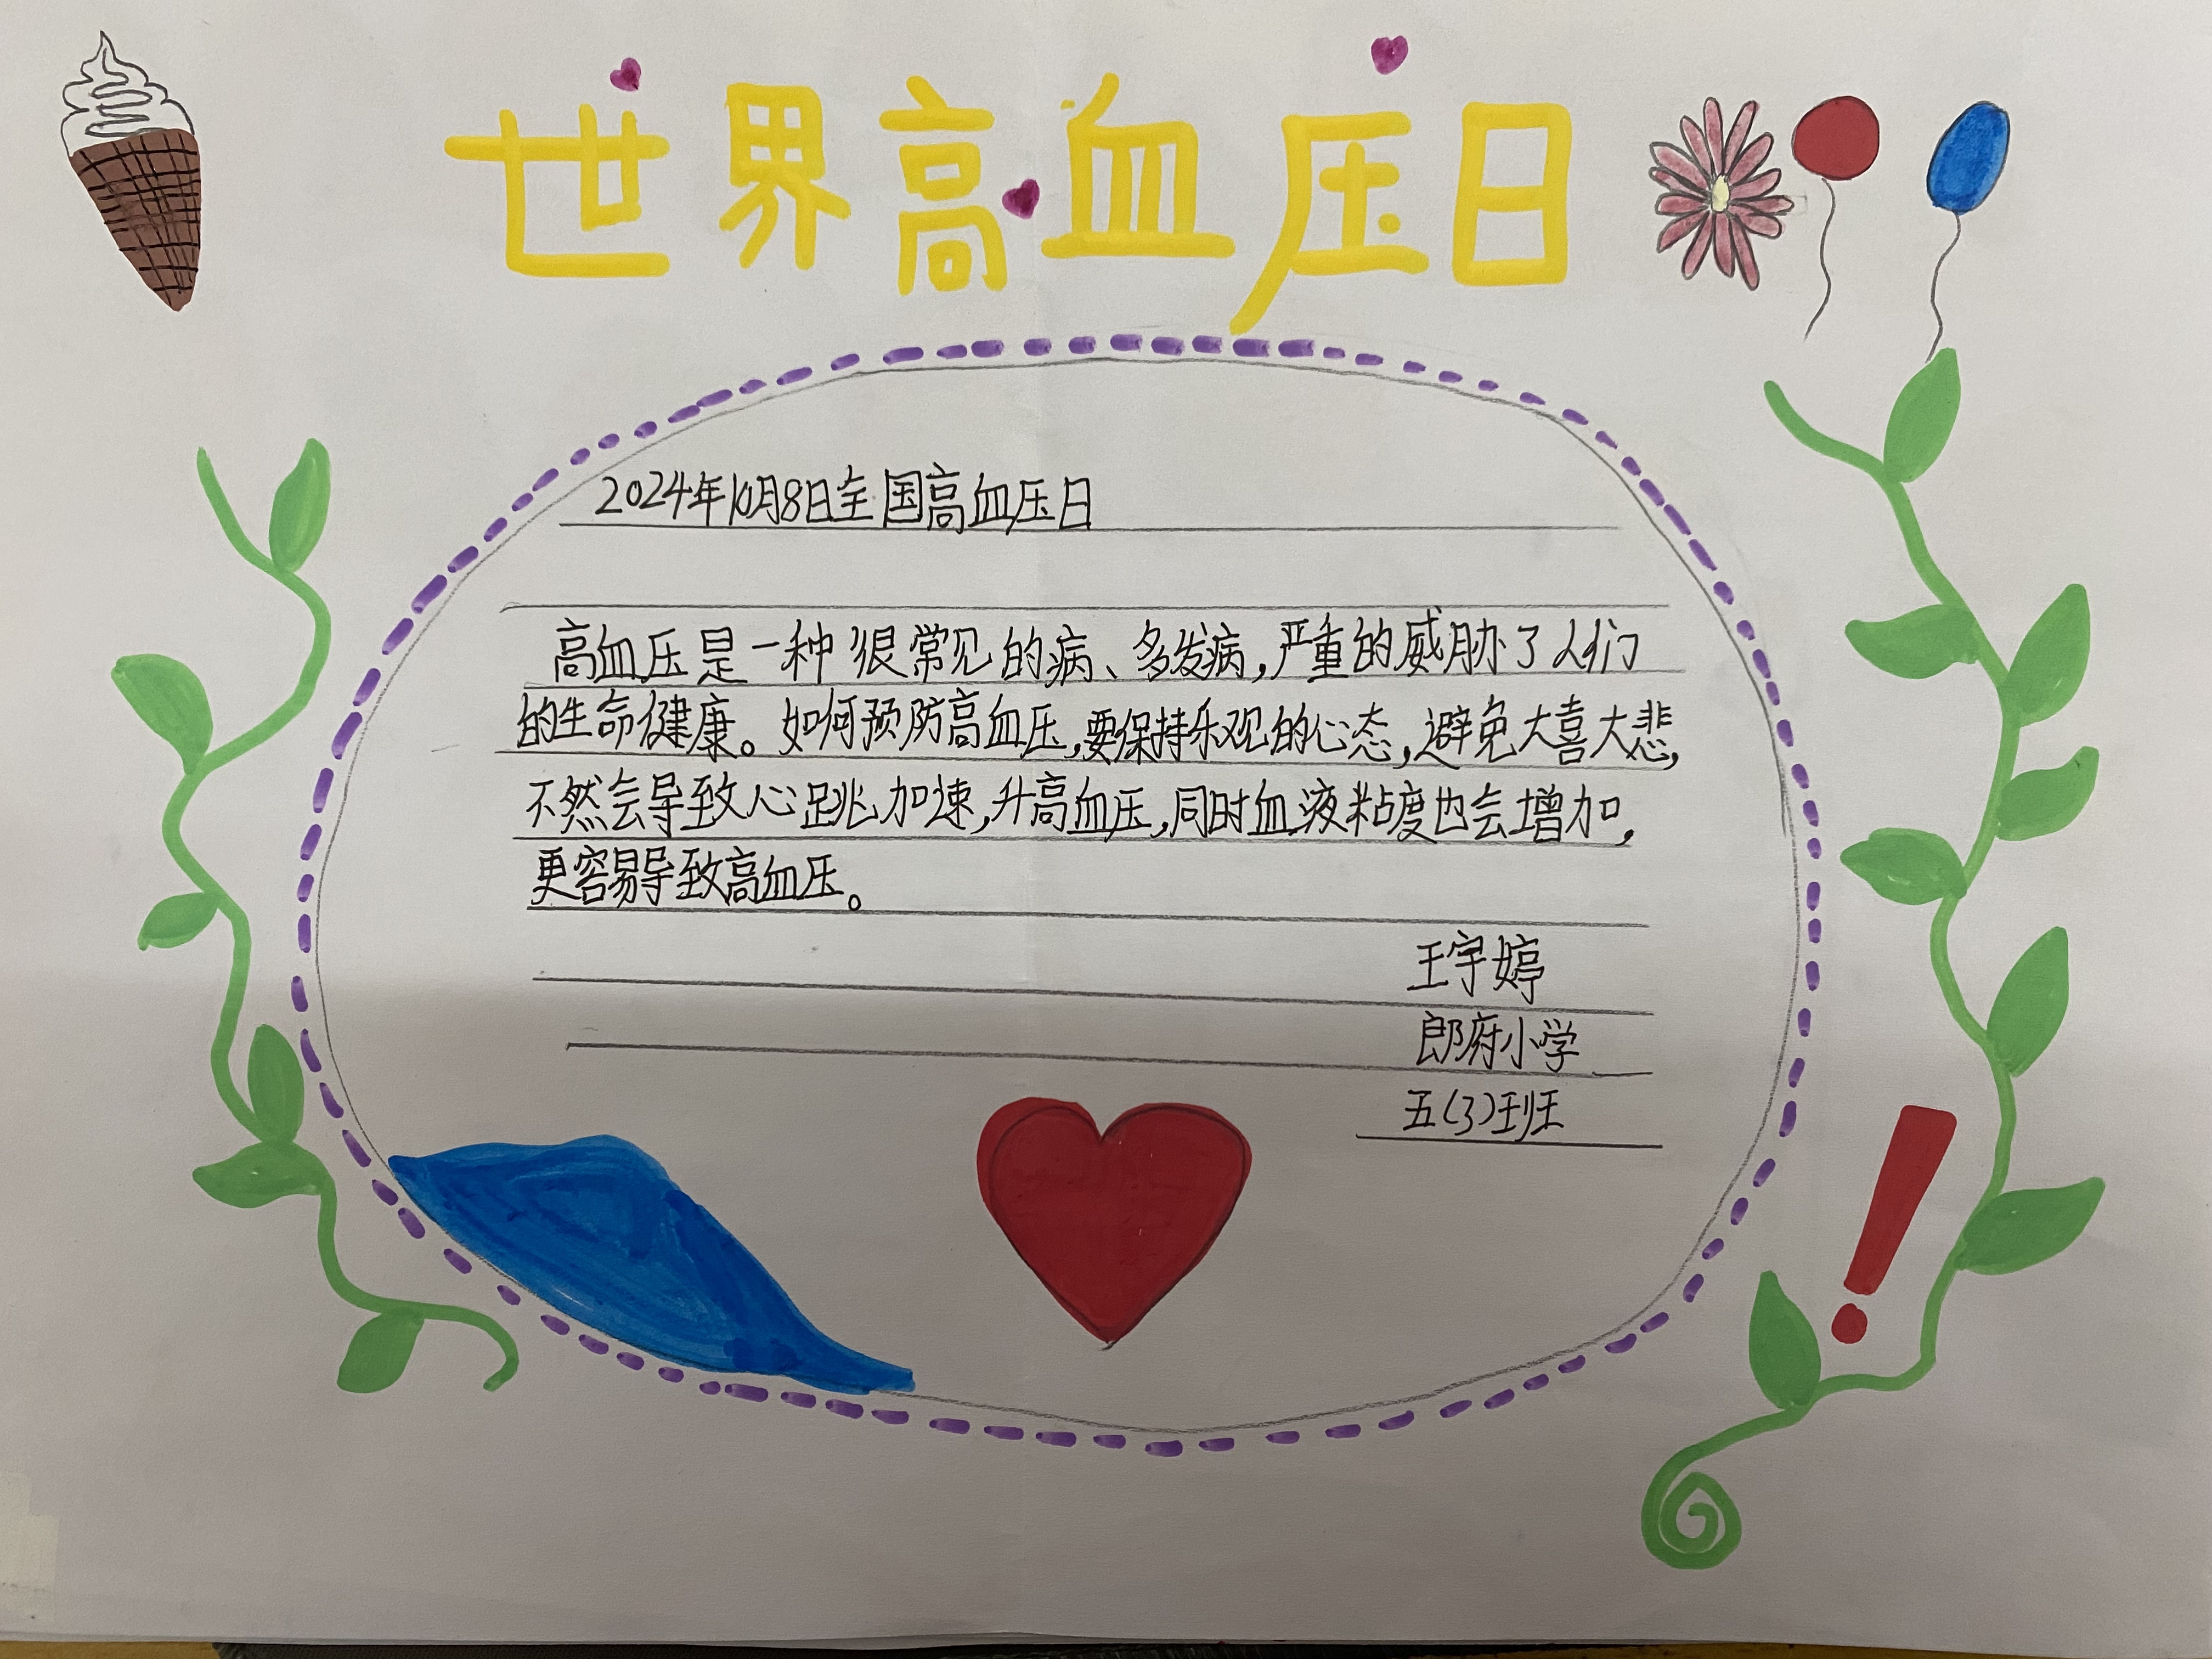 世界高血压日
2024年10月8日全国高血压日
高血压是一种很常见的病、多发病,严重的威胁了人们
的生命健康。如何预防高血压,要保持乐观的心态,避免大喜大悲,
不然会导致心跳加速,升高血压,同时血液粘度也会增加,
更容易导致高血压。
王宇婷
郎府小学
五(3)班